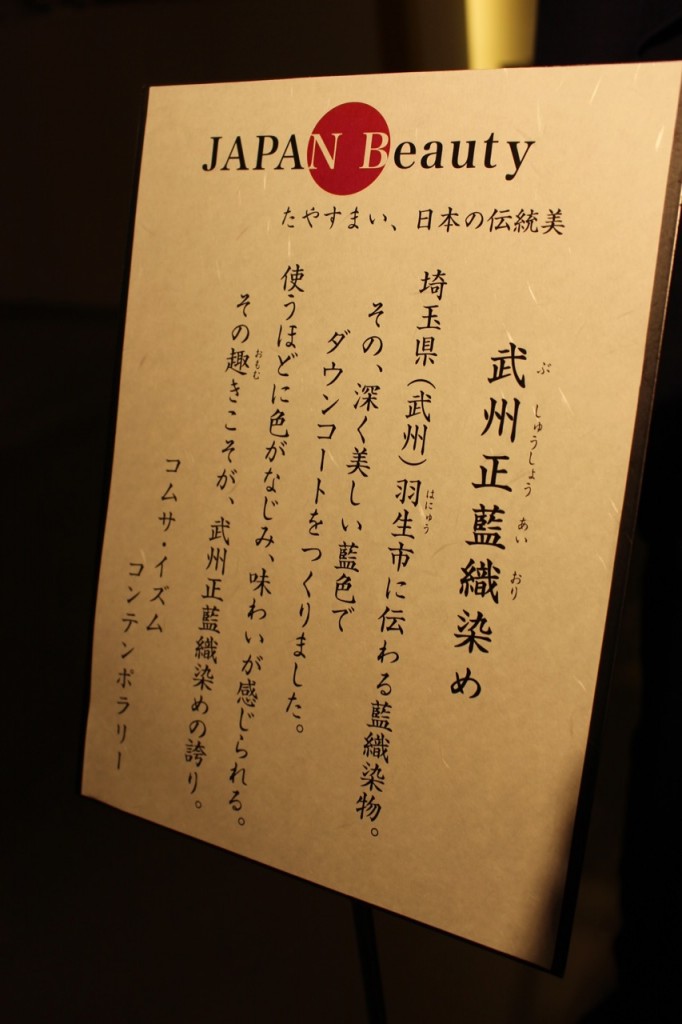 JAPAN Beauty
たやすまい、日本の伝統美
武州正藍織染め
ぶしゅうしょうあいおり
埼玉県（武州）羽生市に伝わる藍織染物。
はにゅう
その、深く美しい藍色で
ダウンコートをつくりました。
使うほどに色がなじみ、味わいが感じられる。
その趣きこそが、武州正藍織染めの誇り。
おもむ
コムサ・イズム
コンテンポラリー